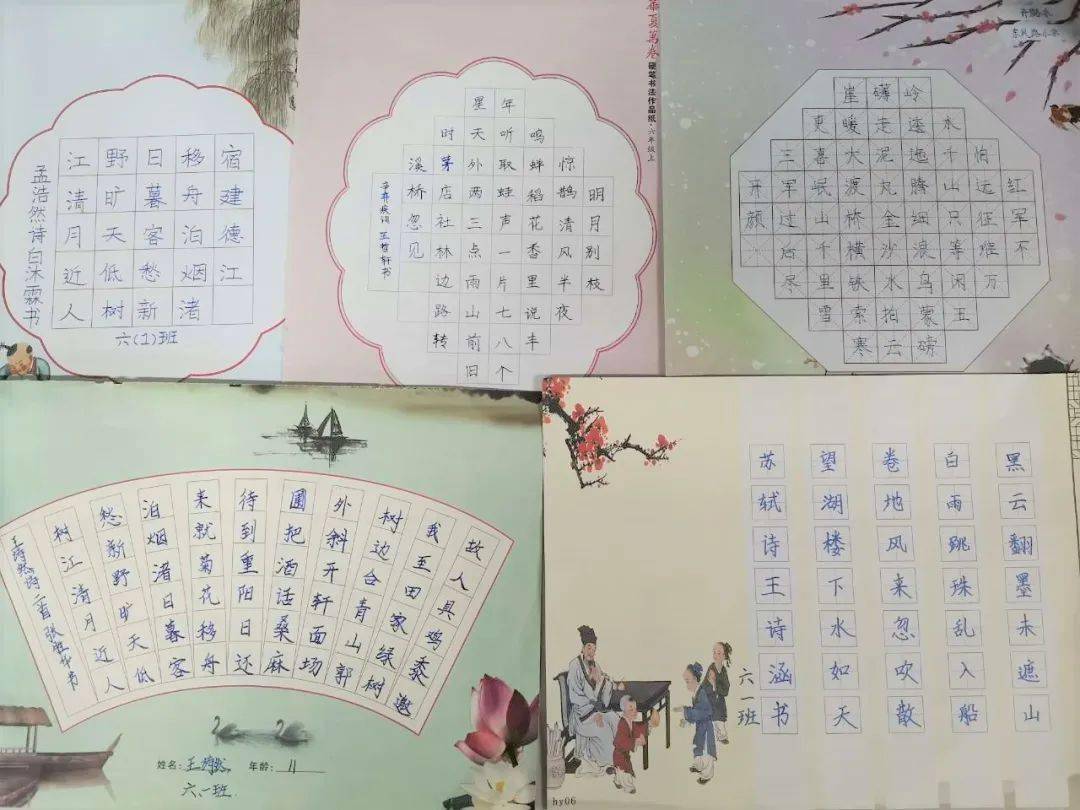 宿建德江
移舟泊烟渚
日暮客愁新
野旷天低树
江清月近人
孟浩然诗白沐霖书
六(1)班
華夏萬卷 硬笔书法作品纸·六年级上
明月别枝
惊鹊清风半夜
鸣蝉稻花香里说丰
年听取蛙声一片七八个
星天外两三点雨山前旧
时茅店社林边路转
溪桥忽见
辛弃疾词 王哲轩书
东风路小学
红军不
怕远征难万
水千山只等闲五
岭逶迤腾细浪乌蒙磅
礴走泥丸金沙水拍云
崖暖大渡桥横铁索寒
更喜岷山千里雪
三军过后尽
开颜
故人具鸡黍邀
我至田家绿树
树边合青山郭
外斜开轩面场
圃把酒话桑麻
待到重阳日还
来就菊花移舟
泊烟渚日暮客
愁新野旷天低
树江清月近人
姓名: 年龄: 11
六.一班.
黑云翻墨未遮山
白雨跳珠乱入船
卷地风来忽吹散
望湖楼下水如天
苏轼诗王诗涵书
六一班
hy06